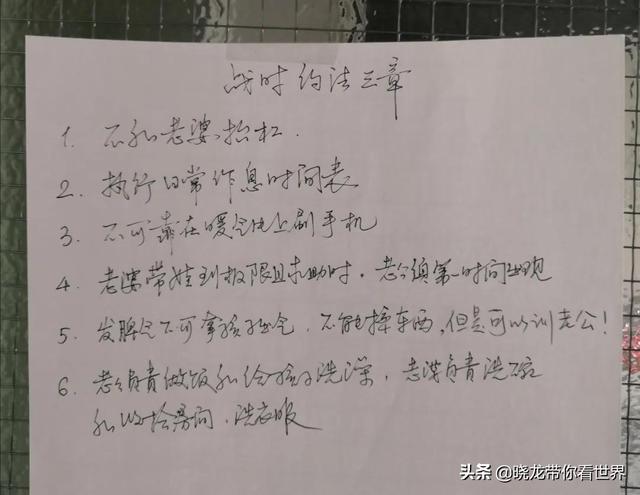 战时约法三章
1. 不和老婆抬杠.
2. 执行日常作息时间表
3. 不可靠在暖气上刷手机
4. 老婆带娃到极限且求助时，老公须第一时间出现
5. 发脾气不可拿孩子出气，不能摔东西，但是可以训老公！
6. 老公负责做饭和给孩子洗澡，老婆负责洗碗
和收拾房间、洗衣服
头条 @晓龙带你看世界